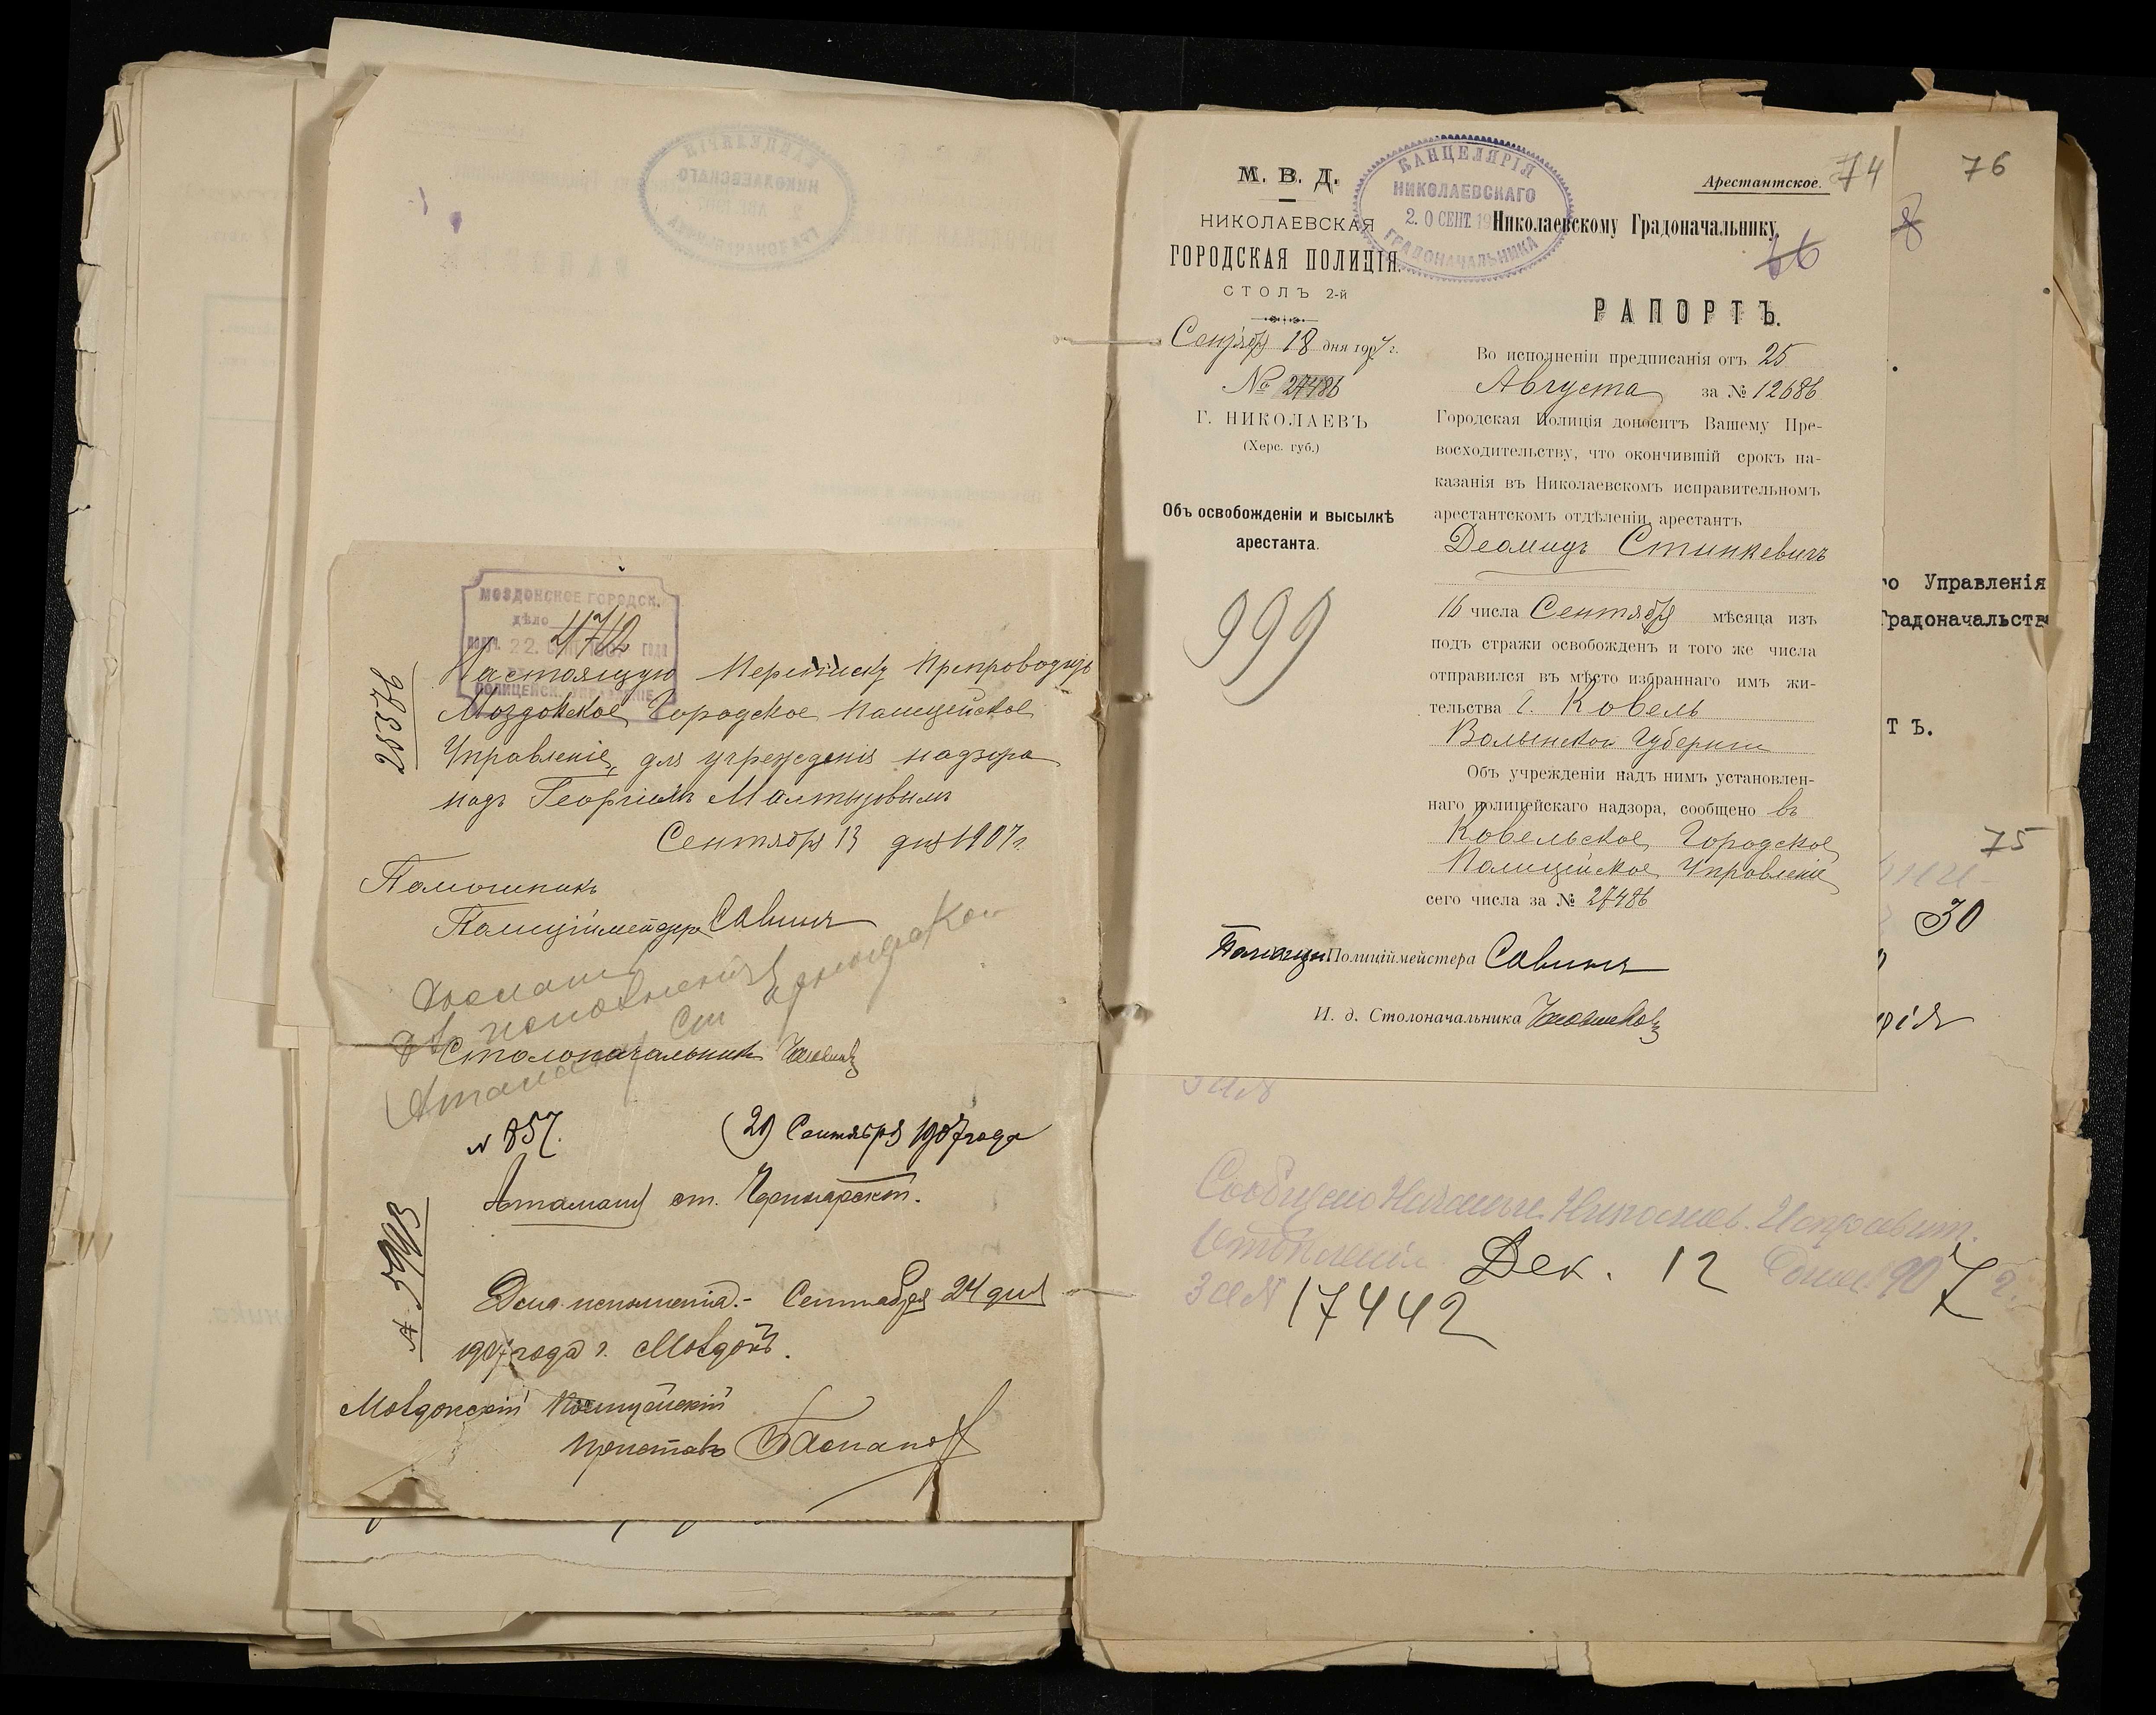 МОЗДОКСКОЕ ГОРОДСК.
дѣло
4712
22. СЕН. 1907 ГОДА
ПОЛИЦЕЙСК. УПРАВЛЕНІЕ
25376
Настоящую переписку препроводить
Моздокское Городское Полицейское
Управленіе, для учрежденія надзора
надъ Георгіемъ Малтызовымъ
Сентября 13 дня 1907 г.
Помощникъ
Полиціймейстера Савинъ
Столоначальникъ
N 857.
Сентября 1907 года
Атаману ст. Черноярской.
Сентября 24 дня
1907 года г. Моздокъ.
Моздокскій Полицейскій
Приставъ
74
76
М. В. Д.
НИКОЛАЕВСКАЯ
ГОРОДСКАЯ ПОЛИЦІЯ.
СТОЛЪ 2-й
Сентября 18 дня 1907 г.
№ 27486
Г. НИКОЛАЕВЪ
(Херс. губ.)
Объ освобожденіи и высылкѣ
арестанта.
999
КАНЦЕЛЯРІЯ
НИКОЛАЕВСКАГО
20 СЕНТ. 19
ГРАДОНАЧАЛЬНИКА
Арестантское.
Николаевскому Градоначальнику.
66
РАПОРТЪ.
Во исполненіи предписанія отъ 25
Августа за № 12686
Городская Полиція доноситъ Вашему Пре-
восходительству, что окончившій срокъ на-
казанія въ Николаевскомъ исправительномъ
арестантскомъ отдѣленіи, арестантъ
Деомидъ Стинкевичъ
16 числа Сентября мѣсяца изъ
подъ стражи освобожденъ и того же числа
отправился въ мѣсто избраннаго имъ жи-
тельства г. Ковель
Волынской Губерніи
Объ учрежденіи надъ нимъ установлен-
наго полицейскаго надзора, сообщено въ
Ковельское Городское
Полицейское Управленіе
сего числа за № 27486
Полиціймейстера Савинъ
И. д. Столоначальника
го Управленія
Градоначальства
ТЪ.
75
30
рія
Сообщено Начальн. Николаев. Исправит.
Отдѣленія Дек. 12 907 г.
за № 17442